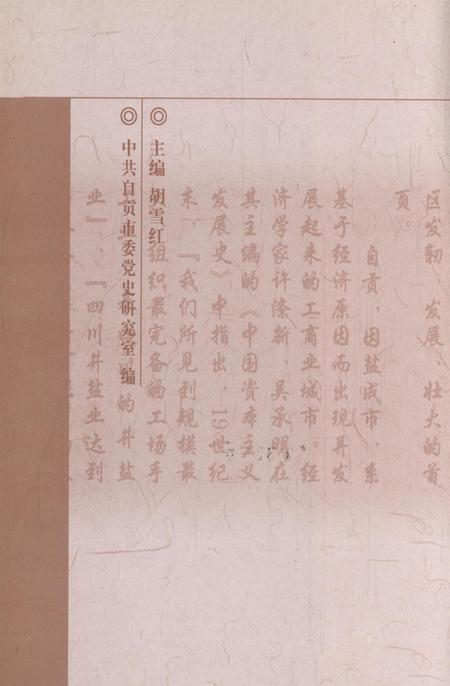 区发轫、发展、壮大的首
页。
自贡，因盐成市，系
基于经济原因而出现并发
展起来的工商业城市。经
济学家许涤新、吴承明在
其主编的《中国资本主义
发展史》中指出，19世纪
末，『我们所见到规模最
组织最完备的工场手
的井盐
业』，『四川井盐业达到
◎ 主编 胡雪红
◎ 中共自贡市委党史研究室 编